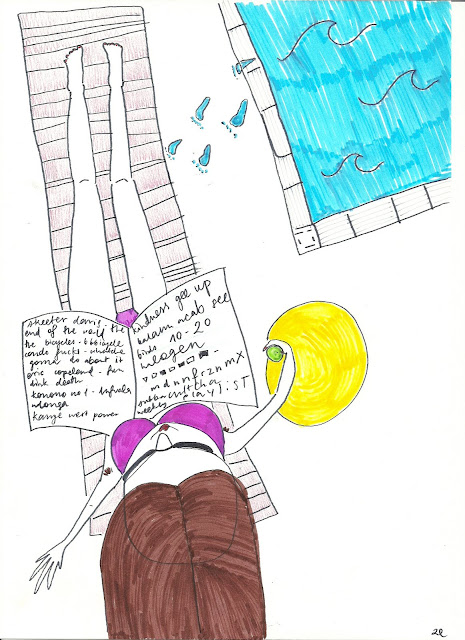 skeeter davis -
end of the world - the
the bicycles - b b bicycle
condo fucks - whatcha
gonna do about it
eric copeland - fun
dink death
konono no 1 - lufuala
ndonga
kanye west power
kindness gee up
balam acab see
birds 10-20
neogen
mdnnfrznmx
cultcha
weekly playlist